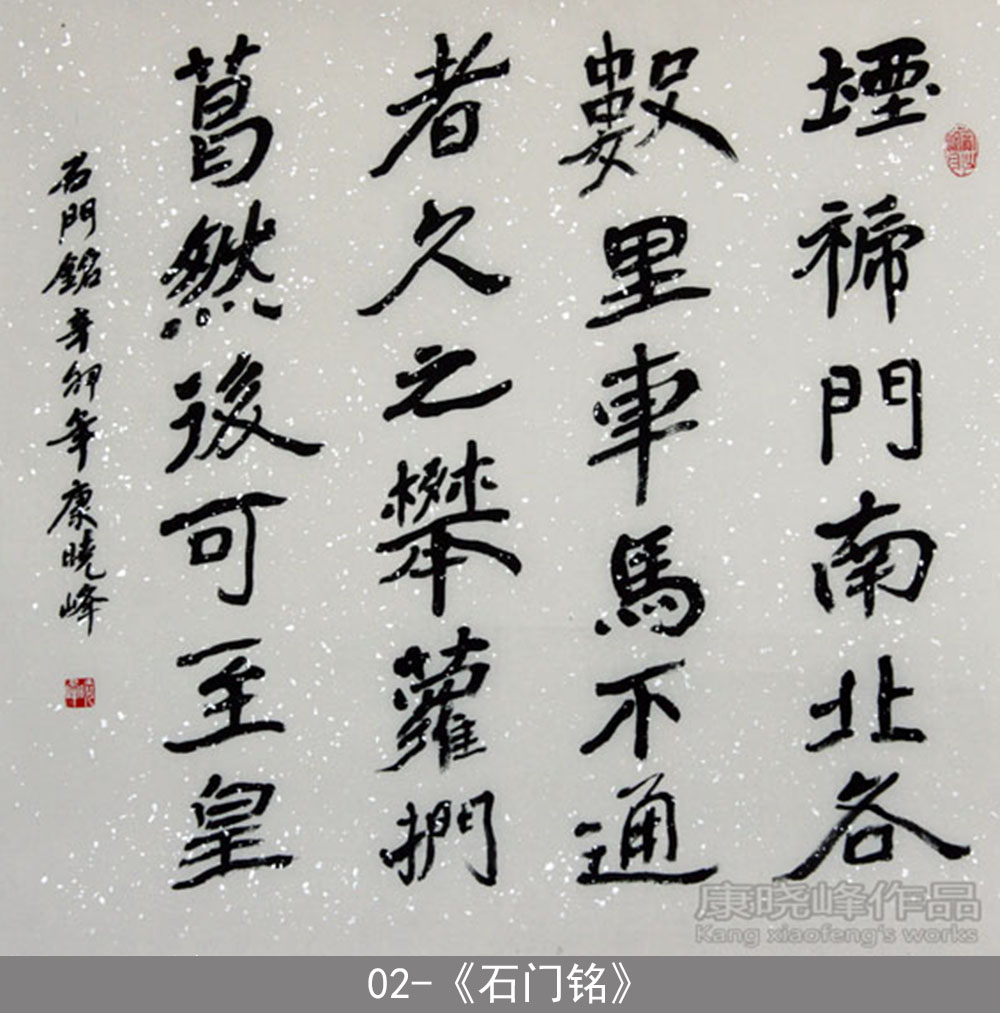 堙褫門南北各
數里車馬不通
者久之攀蘿捫
葛然後可至皇
石門銘辛卯年康曉峰
康晓峰作品
Kang xiaofeng's works
02-《石门铭》